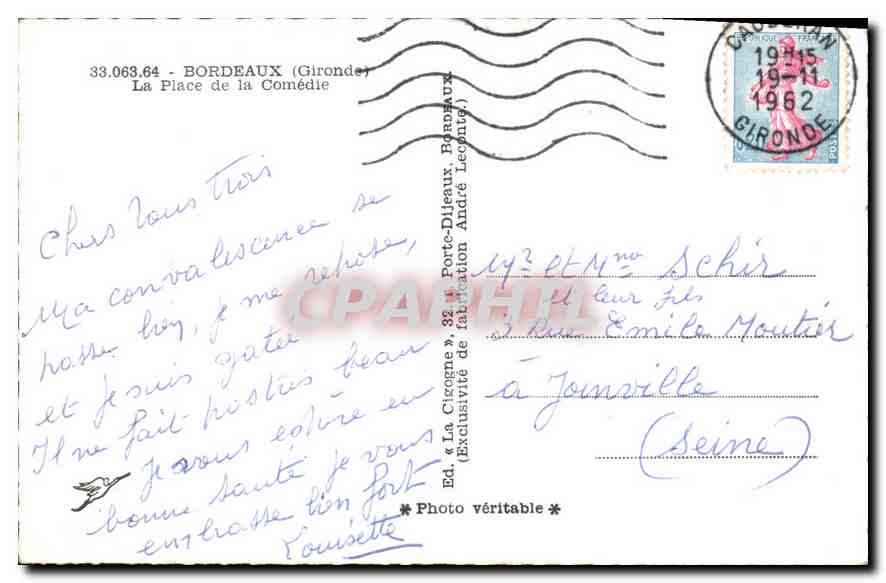 33.063.64 - BORDEAUX (Gironde)
La Place de la Comédie
CAUDERAN
19H15
19-11
1962
GIRONDE
REPUBLIQUE FRANCAISE
POSTES
Chers Vous trois
Ma convalescence se
passe bien, je me repose,
et je suis gatée
Il ne fait pas très beau
Je vous espère en
bonne santé je vous
embrasse bien fort
Louisette
Ed. « La Cigogne », 32. Porte-Dijeaux, BORDEAUX.
(Exclusivité de fabrication André Leconte.)
CPAPHIL
Mr et Mme Schir
et leur fils
3 Rue Emile Moutier
à Joinville
(Seine)
* Photo véritable *